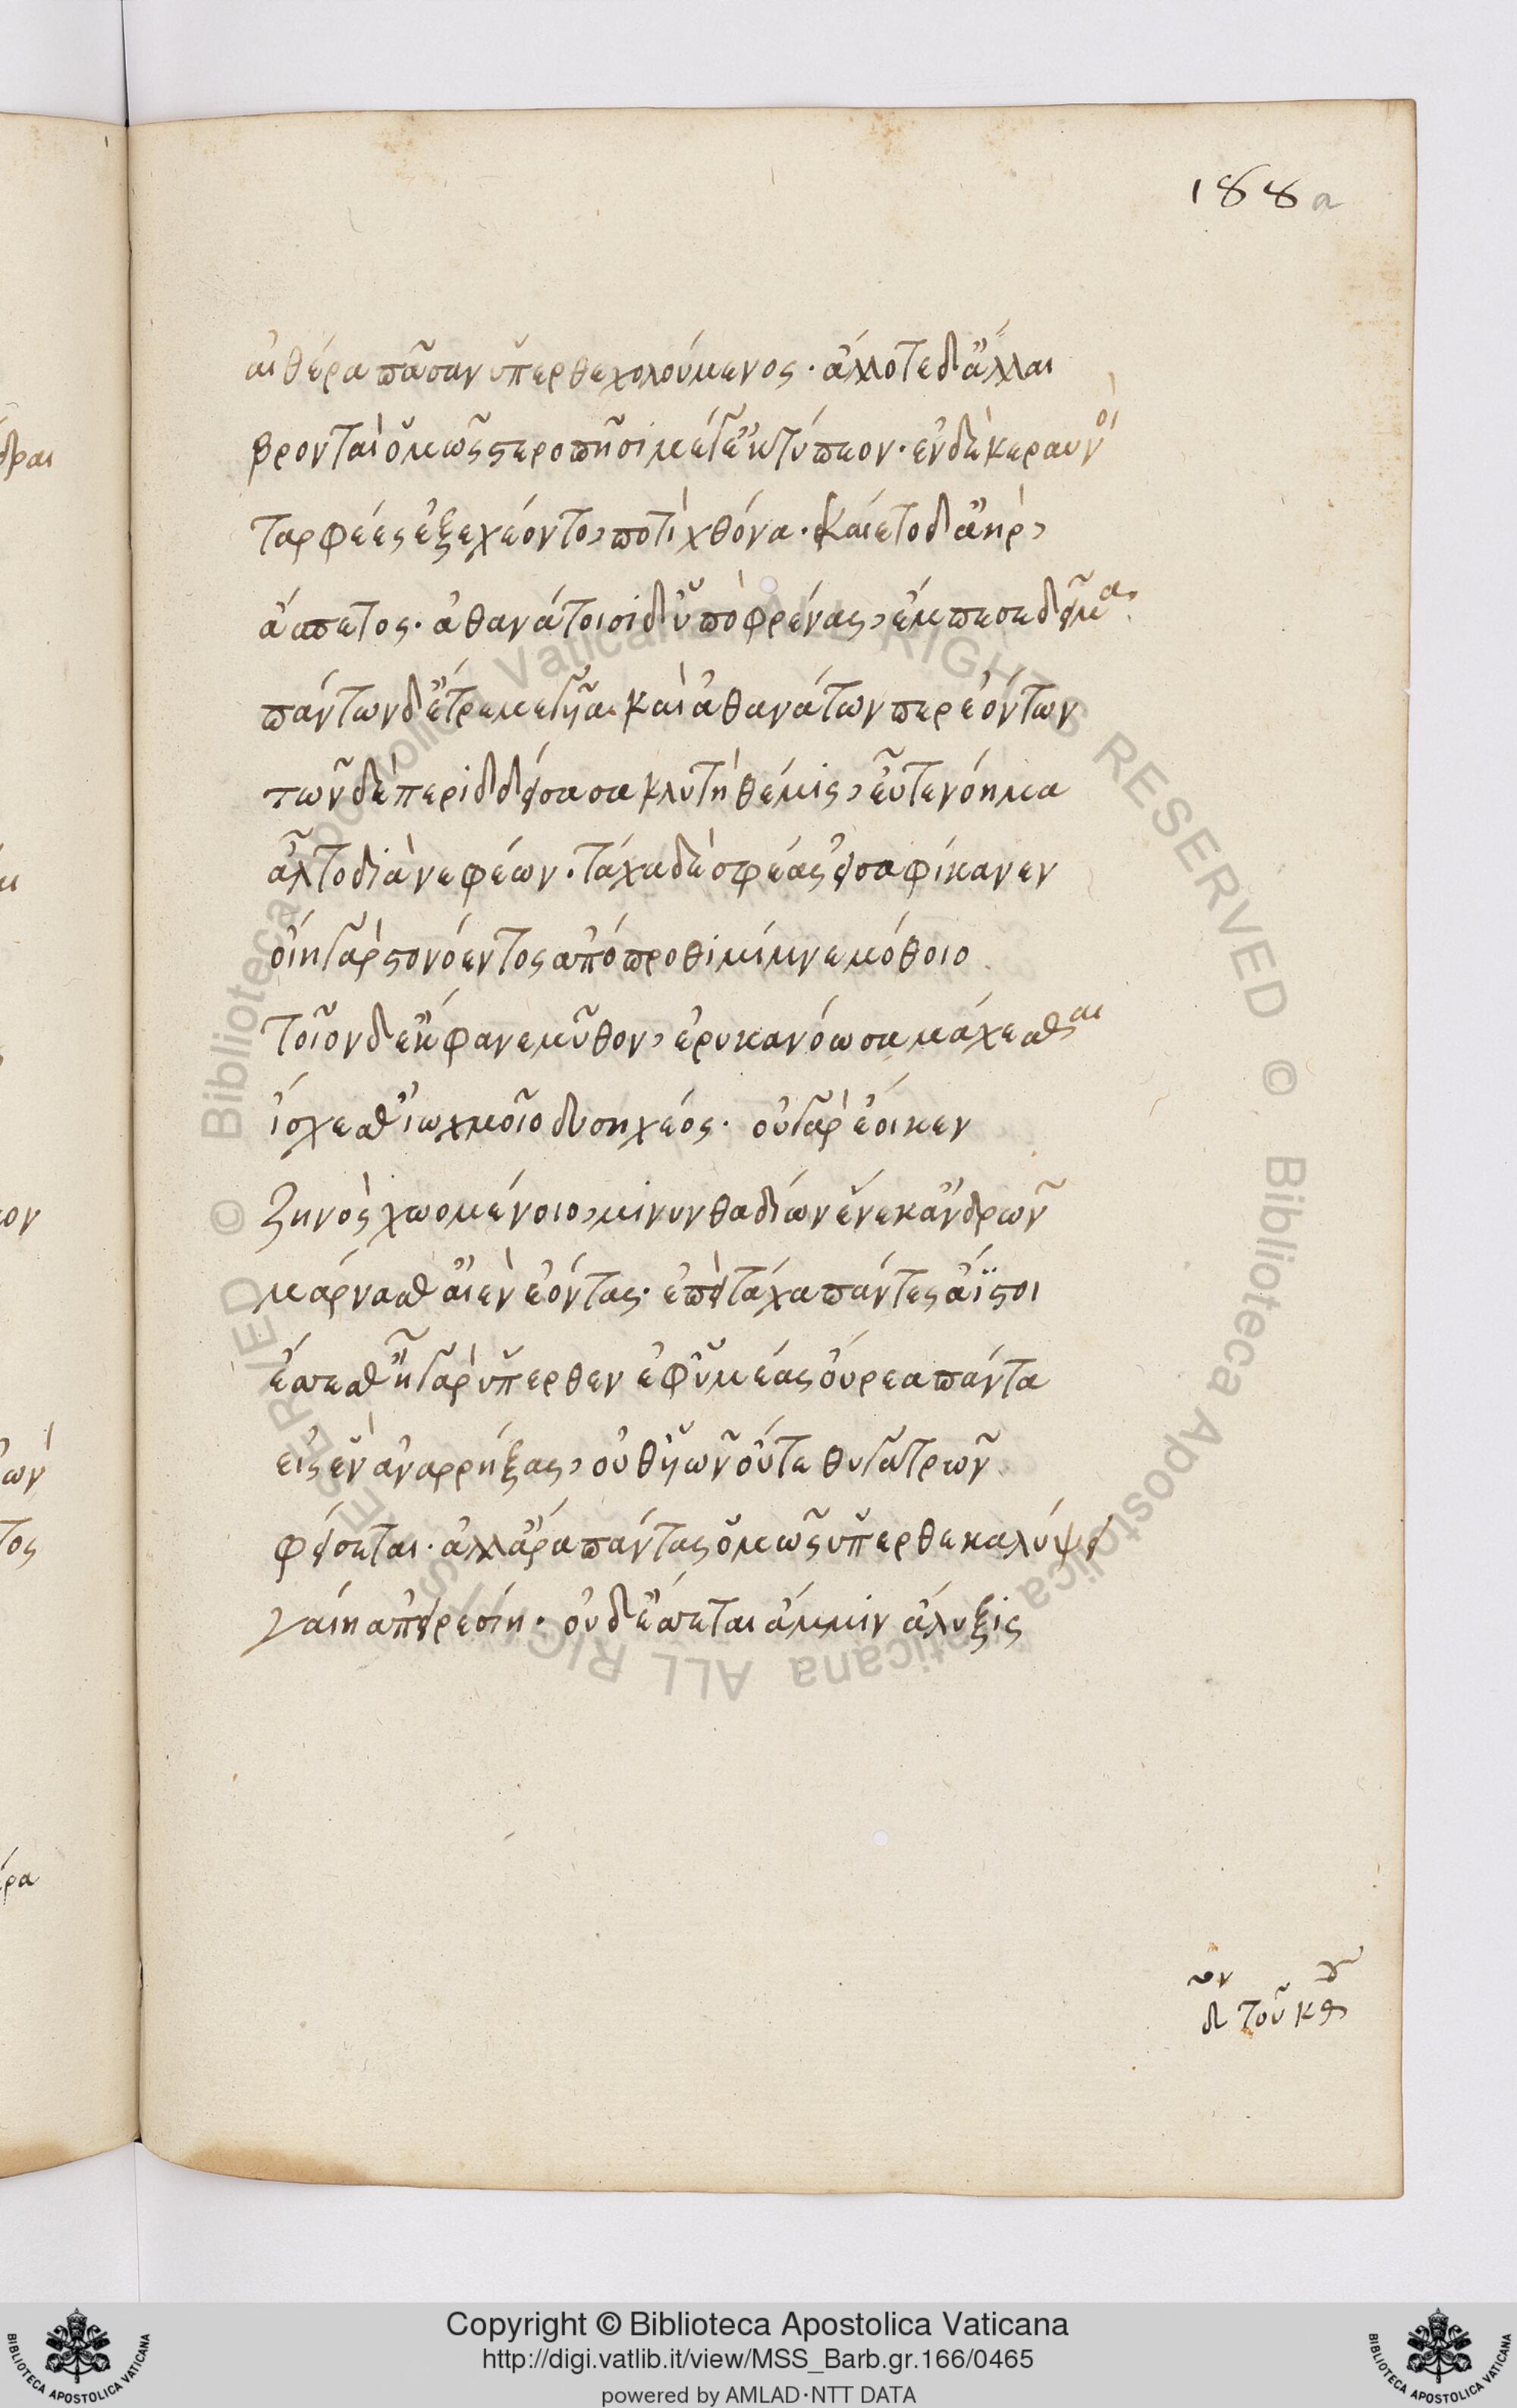 188a
αἰθέρα πᾶσαν ὕπερθε χολούμενος· ἄλλοτε δ' ἄλλαι
βρονταὶ ὁμῶς στεροπῇσι μέγ' ἔκτύπεον· ἐν δὲ κεραυνοὶ
ταρφέες ἐξεχέοντο, ποτὶ χθόνα· καίετο δ' ἀὴρ,
ἄσπετος· ἀθανάτοισι δ' ὑπὸ φρένας, ἔμπεσε δεῖμα,
πάντων δ' ἔτρεμε γυῖα καὶ ἀθανάτων περ ἐόντων
τῶν δὲ περιδδείσασα κλυτὴ θέμις, εὖτε νόημα
ἆλτο διὰ νεφέων· τάχα δὲ σφέας εἰσαφίκανεν
οἴη γὰρ στονόεντος ἀπόπροθι μίμνε μόθοιο
τοῖον δ' ἔκφανε μῦθον, ἐρυκανόωσα μάχεσθαι
ἴσχεσθ' ἰωχμοῖο δυσηχέος· οὐ γὰρ ἔοικεν
ζηνὸς χωομένοιο, μινυνθαδίων ἕνεκ' ἀνδρῶν
μάρνασθ' αἰὲν ἐόντας· ἐπεὶ τάχα πάντες ἄϊστοι
ἔσσεσθ' ἦ γὰρ ὕπερθεν ἐφ' ὑμέας οὔρεα πάντα
εἰς ἓν ἀναρρήξας, οὔθ' υἱῶν οὔτε θυγατρῶν
φείσεται· ἀλλ' ἄρα πάντας ὁμῶς ὕπερθε καλύψει
γαίῃ ἀπειρεσίῃ· οὐδ' ἔσσεται ἄμμιν ἄλυξις
Copyright © Biblioteca Apostolica Vaticana
http://digi.vatlib.it/view/MSS_Barb.gr.166/0465
powered by AMLAD·NTT DATA